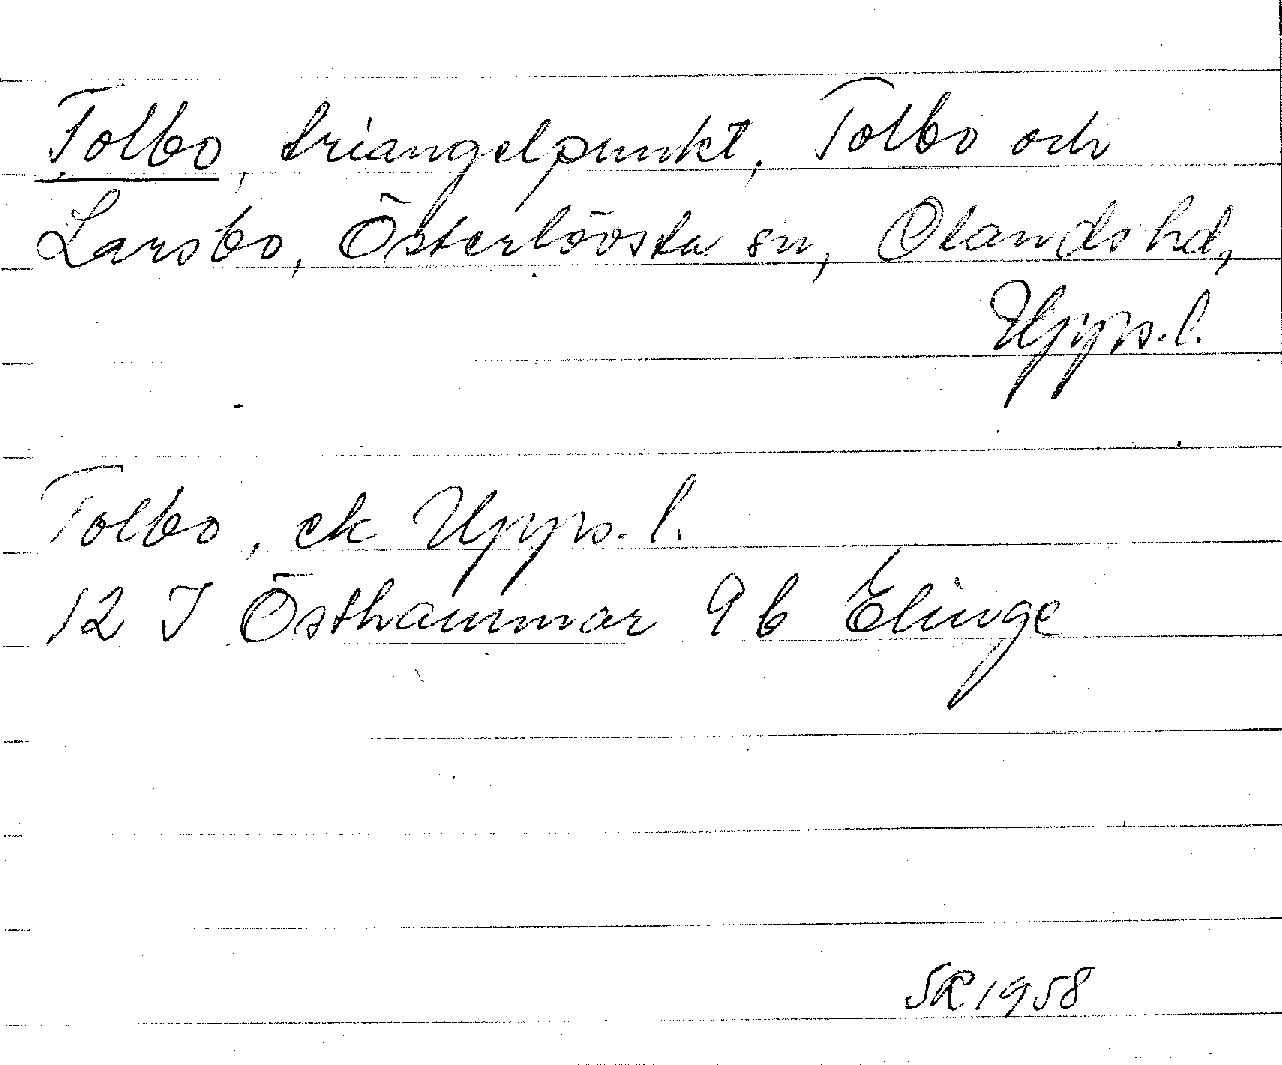 Tolbo, triangelpunkt, Tolbo och
Larsbo, Österlövsta sn, Olands hd,
Upps.l.
Tolbo, ek Upps.l.
12 I Östhammar 9b Elinge
SR 1958